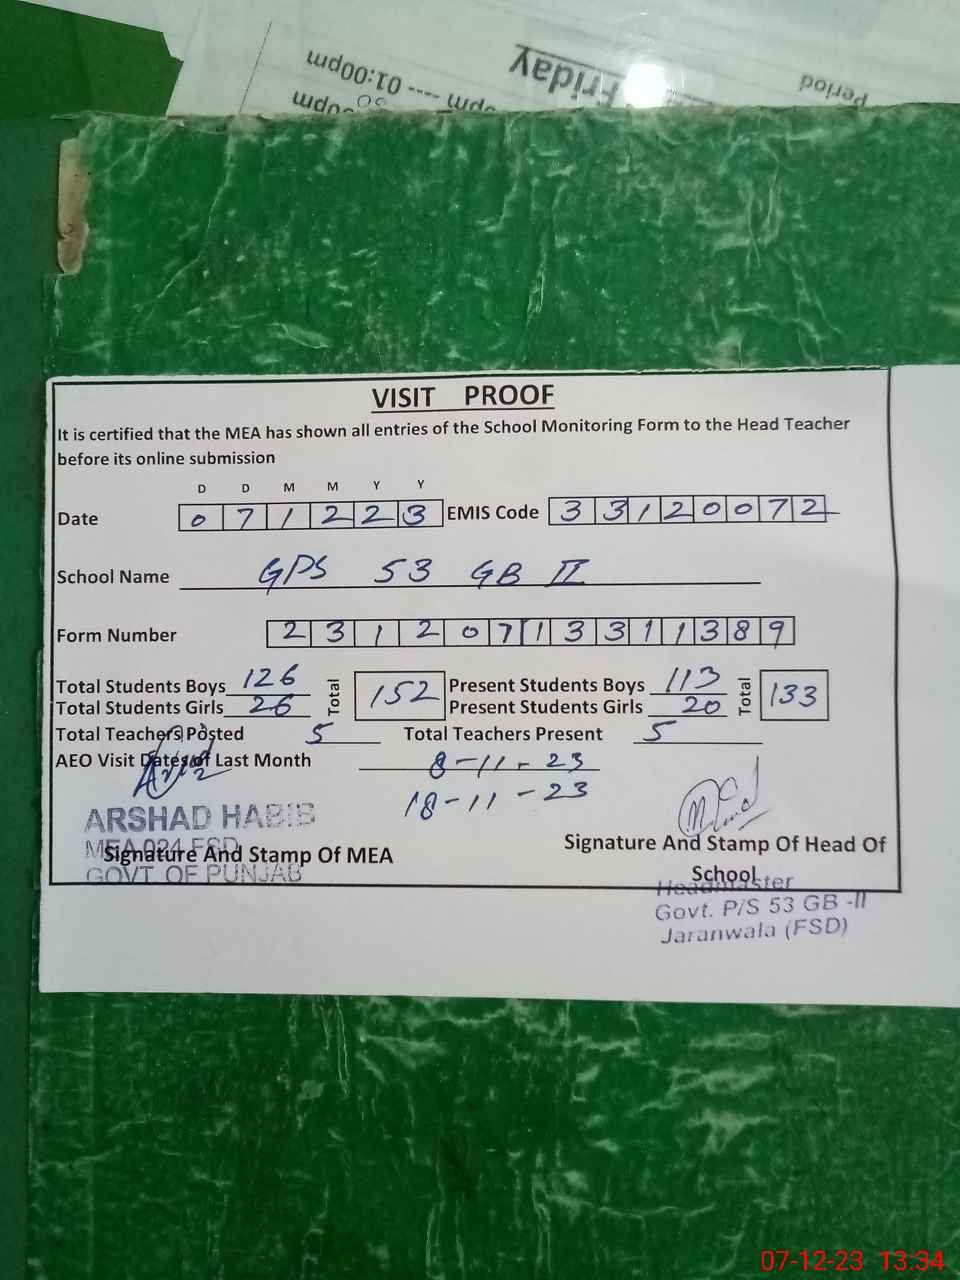 Period
Friday
pm ---- 01:00pm
VISIT PROOF
It is certified that the MEA has shown all entries of the School Monitoring Form to the Head Teacher
before its online submission
D D M M Y Y
Date 0 7 1 2 2 3 EMIS Code 3 3 1 2 0 0 7 2
School Name GPS 53 GB II
Form Number 2 3 1 2 0 7 1 3 3 1 1 3 8 9
Total Students Boys 126 Total 152 Present Students Boys 113 Total 133
Total Students Girls 26 Present Students Girls 20
Total Teacher(s) Posted 5 Total Teachers Present 5
AEO Visit Dates of Last Month 8-11-23
18-11-23
ARSHAD HABIB
MEA 024 FSD
GOVT OF PUNJAB
Signature And Stamp Of MEA
Signature And Stamp Of Head Of
School
Headmaster
Govt. P/S 53 GB -II
Jaranwala (FSD)
07-12-23 13:34